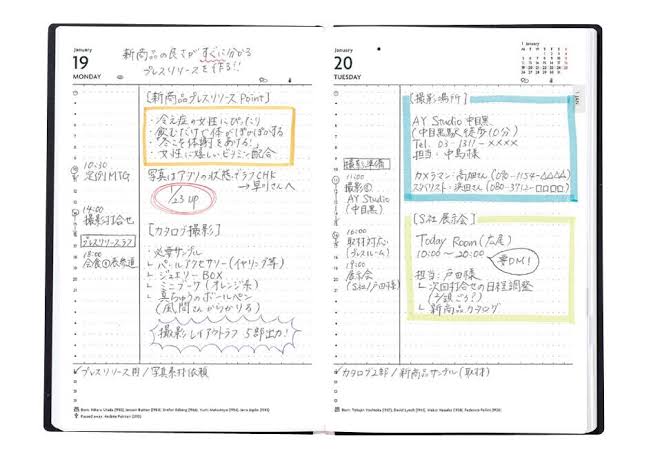 January
19
MONDAY
新商品の良さがすぐに分かる
プレスリリースを作る!!
[新商品プレスリリース Point]
・冷え症の女性にぴったり
・飲むだけで体がぽかぽかする
・冬こそ体謝をあげる!
・女性に嬉しいビタミン配合
写真はアプリの状態でラフCHK
→早川さんへ
1/23 up
10:30
定例MTG
14:00
撮影打合せ
プレスリリースラフ
18:00
会食@表参道
[カタログ撮影]
・必要サンプル
└ パールアクセサリー(イヤリング等)
└ ジュエリーBOX
└ ミニブーケ(オレンジ系)
└ 真ちゅうのボールペン
(風間さんからかりる)
撮影レイアウトラフ 5部出力!
✓プレスリリース用/写真素材依頼
January
20
TUESDAY
1 January
1 JAN
[撮影場所]
AY Studio 中目黒
(中目黒駅徒歩10分)
Tel. 03-1311-××××
担当:中島様
カメラマン:高畑さん(090-1154-△△△△)
スタイリスト:浜田さん(080-3712-□□□□)
撮影準備
11:00
撮影@
AY Studio
(中目黒)
16:00
取材対応
(プレスルーム)
19:00
展示会
(S社/戸田様)
[S社 展示会]
Today Room(広尾)
10:00〜20:00
要DM!
担当:戸田様
└ 次回打合せの日程調整
└ 新商品カタログ
✓カタログ2部/新商品サンプル(取材)